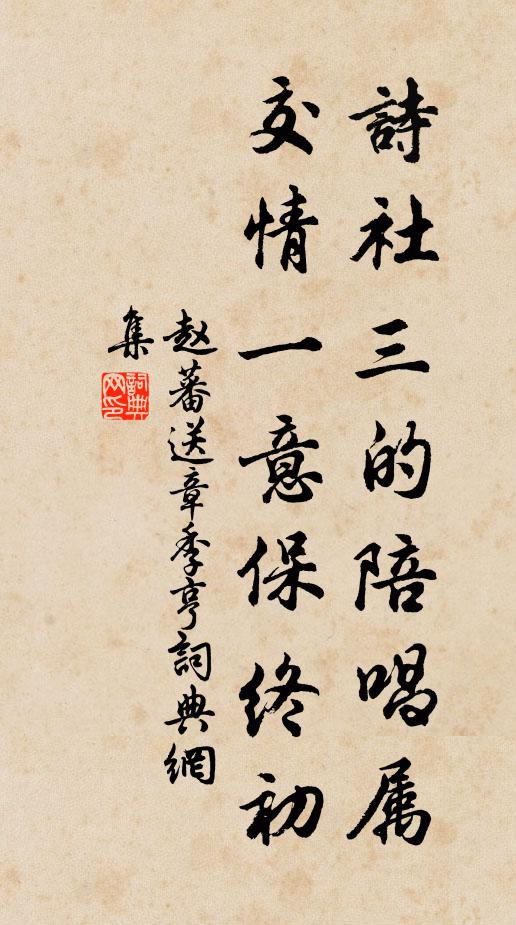 詩社三的陪唱属
交情一意保終初
赵蕃送章季亨詞典網
集
詞典网印